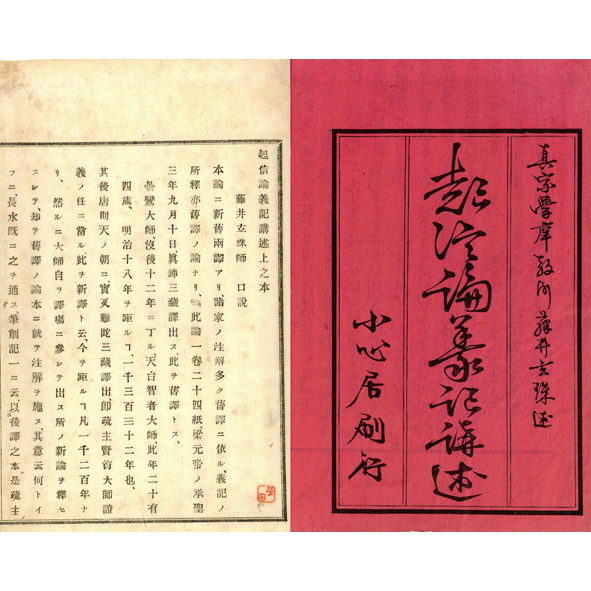 真宗學庠教師藤井玄珠述
起信論義記講述
小心居刷行
起信論義記講述上之本
藤井玄珠師 口說
本論ニ新舊兩譯アリ諸家ノ注解多ク舊譯ニ依ル、義記ノ
所釋亦舊譯ノ論ナリ、此論一卷二十四紙梁元帝ノ承聖
三年九月十日、眞諦三藏譯出ス此ヲ舊譯トス、
曇鸞大師、沒後十二年ニ丁ル、天台智者大師、此年二十有
四歲、明治十八年ヲ距ルヿ、一千三百三十二年也、
其後唐則天ノ朝ニ實叉難陀三藏譯出卽疏主賢首大師證
義ノ任ニ當ル此ヲ新譯ト云、今ヲ距ルヿ凡一千二百年ナ
リ、然ルニ大師自ラ譯場ニ參シテ出ス所ノ新論ヲ釋セ
スシテ、却テ舊譯ノ論本ニ就テ注解ヲ施ス、其意云何トイ
フニ、長水旣ニ之ヲ通ス筆削記一ニ云以後譯之本是疏主